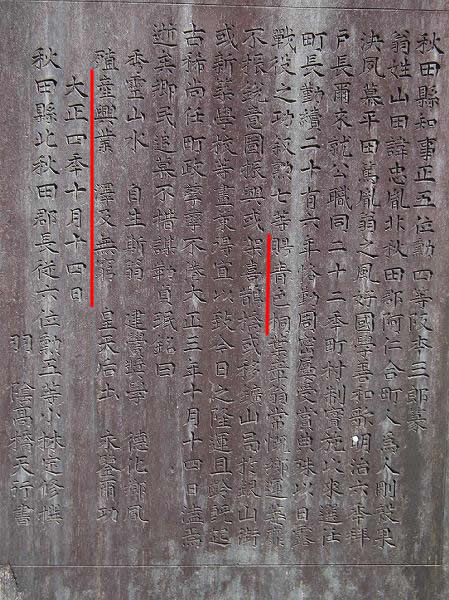 秋田縣知事正五位勳四等阪本三郎篆
翁姓山田諱忠胤北秋田郡阿仁合町人為人剛毅果
決夙慕平田篤胤翁之風好國學善和歌明治六季拝
戸長爾來就公職同二十二季町村制實施以來選任
町長勤續二十有六年恪勤周密屢受賞典殊以日露
戰役之功叙勳七等賜青色桐葉章翁常慨郷運萎靡
不振鋭意圖振興或架喜龍橋或移鑛山局於銀山街
或新築學校等畫策得宜以致今日之隆運且齡既超
古稀尚任町政不倦大正三年十月十四日溘焉
逝矣郷民追慕不惜謀勒貞珉銘曰
秀靈山水 自生斯翁 德化郷風
殖産興業 澤及無窮 皇天后土 永鑒爾功
大正四季十月十四日
秋田縣北秋田郡長從六位勳五等小林定修撰
明陰高橋天行書